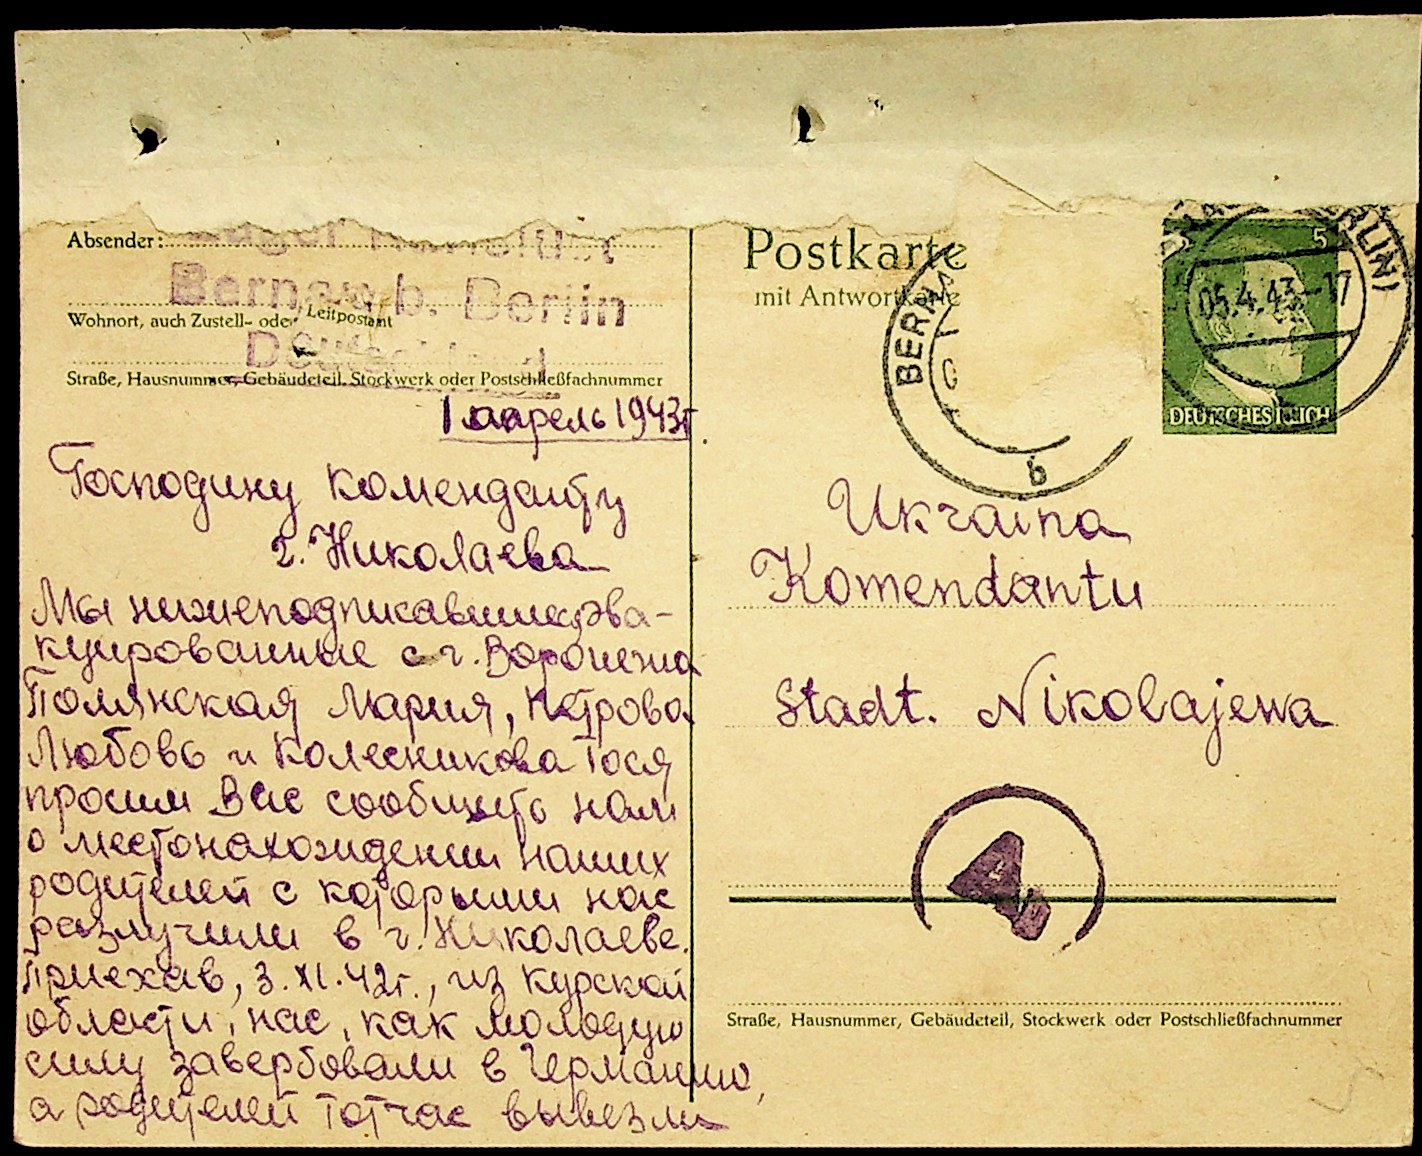 Absender:
Bernau b. Berlin
Wohnort, auch Zustell- oder Leitpostamt
Deutschland
Straße, Hausnummer, Gebäudeteil, Stockwerk oder Postschließfachnummer
1 апрель 1943г.
Господину коменданту
г. Николаева
Мы нижеподписавшиеся эва-
куированные с г. Воронежа
Полянская Мария, Петрова
Любовь и Колесникова Тося
просим Вас сообщить нам
о местонахождении наших
родителей с которыми нас
разлучили в г. Николаеве.
Приехав, 3.XI.42г., из Курской
области, нас, как молодую
силу завербовали в Германию,
а родителей тотчас вывезли
Postkarte
mit Antwortkarte
BERNA
b
RLIN)
05.4.43-17
5
DEUTSCHES REICH
Ukraina
Komendantu
Stadt. Nikolajewa
Straße, Hausnummer, Gebäudeteil, Stockwerk oder Postschließfachnummer